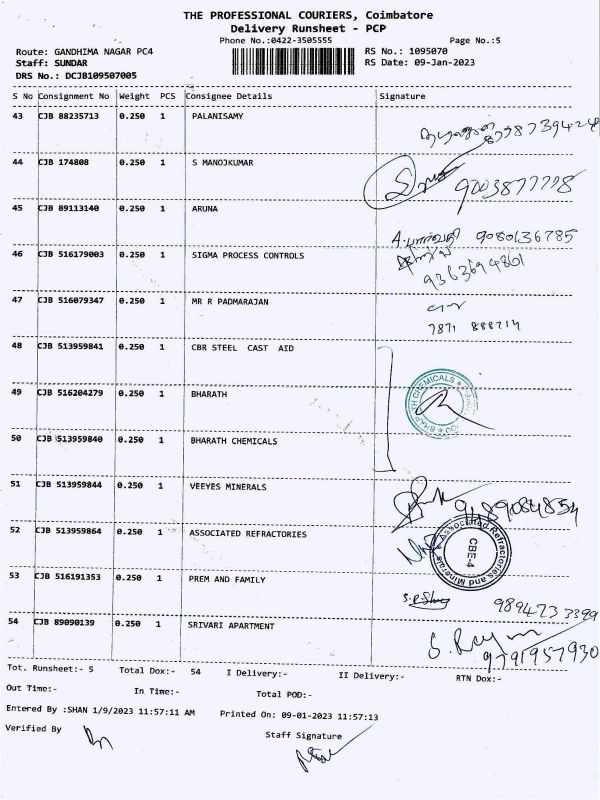 THE PROFESSIONAL COURIERS, Coimbatore
Delivery Runsheet - PCP
Phone No.:0422-3505555 Page No.:5
Route: GANDHIMA NAGAR PC4 RS No.: 1095070
Staff: SUNDAR RS Date: 09-Jan-2023
DRS No.: DCJB109507005
S No Consignment No Weight PCS Consignee Details Signature
43 CJB 88235713 0.250 1 PALANISAMY
44 CJB 174808 0.250 1 S MANOJKUMAR
45 CJB 89113140 0.250 1 ARUNA
A. பார்வதி 9080136785
46 CJB 516179003 0.250 1 SIGMA PROCESS CONTROLS
9363694801
47 CJB 516079347 0.250 1 MR R PADMARAJAN
7871 888714
48 CJB 513959841 0.250 1 CBR STEEL CAST AID
49 CJB 516204279 0.250 1 BHARATH
BHARATH CHEMICALS
50 CJB 513959840 0.250 1 BHARATH CHEMICALS
51 CJB 513959844 0.250 1 VEEYES MINERALS
52 CJB 513959864 0.250 1 ASSOCIATED REFRACTORIES
Associated Refractories and Minerals
CBE-4
53 CJB 516191353 0.250 1 PREM AND FAMILY
9894733399
54 CJB 89090139 0.250 1 SRIVARI APARTMENT
9791957930
Tot. Runsheet:- 5 Total Dox:- 54 I Delivery:- II Delivery:- RTN Dox:-
Out Time:- In Time:- Total POD:-
Entered By :SHAN 1/9/2023 11:57:11 AM Printed On: 09-01-2023 11:57:13
Verified By Staff Signature